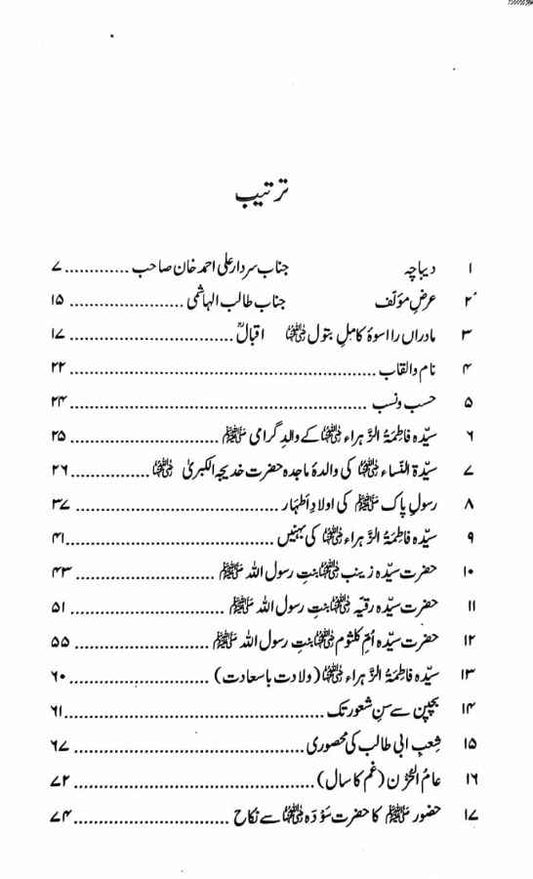 ترتیب
۱ دیباچہ جناب سردار علی احمد خان صاحب ............. ۷
۲ عرضِ مؤلف جناب طالب الہاشمی ............. ۱۵
۳ مادراں را اسوۂ کامل بتول رضی اللہ عنہا اقبالؒ ............. ۱۷
۴ نام و القاب ............. ۲۲
۵ حسب و نسب ............. ۲۴
۶ سیّدہ فاطِمَۃُ الزَّہراء رضی اللہ عنہا کے والدِ گرامی ﷺ ............. ۲۵
۷ سیّدۃ النّساء رضی اللہ عنہا کی والدۂ ماجدہ حضرت خدیجہ الکبریٰ رضی اللہ عنہا ............. ۲۶
۸ رسولِ پاک ﷺ کی اولادِ اَطہار ............. ۳۷
۹ سیّدہ فاطِمَۃُ الزَّہراء رضی اللہ عنہا کی بہنیں ............. ۴۱
۱۰ حضرت سیّدہ زینب رضی اللہ عنہا بنتِ رسول اللہ ﷺ ............. ۴۳
۱۱ حضرت سیّدہ رقیّہ رضی اللہ عنہا بنتِ رسول اللہ ﷺ ............. ۵۱
۱۲ حضرت سیّدہ اُمِّ کلثوم رضی اللہ عنہا بنتِ رسول اللہ ﷺ ............. ۵۵
۱۳ سیّدہ فاطِمَۃُ الزَّہراء رضی اللہ عنہا (ولادت باسعادت) ............. ۶۰
۱۴ بچپن سے سنِ شعور تک ............. ۶۱
۱۵ شِعبِ ابی طالب کی محصوری ............. ۶۷
۱۶ عامُ الحُزن (غم کا سال) ............. ۷۲
۱۷ حضور ﷺ کا حضرت سَوْدَہ رضی اللہ عنہا سے نکاح ............. ۷۴